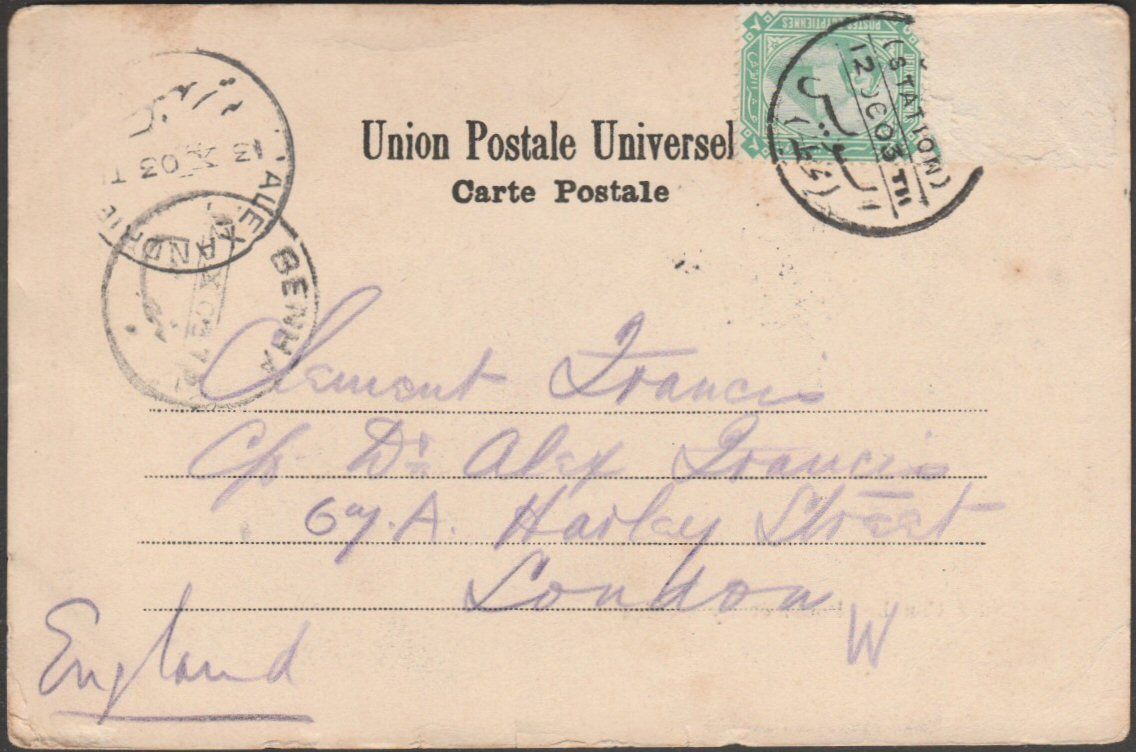 Union Postale Universel
Carte Postale
POSTES EGYPTIENNES
(STATION)
12 X 03 TII
ALEXANDRIE
3 X 03 T
BENHA
Clement Francis
c/o Dr Alex Francis
67.A. Harley Street
London
W
England